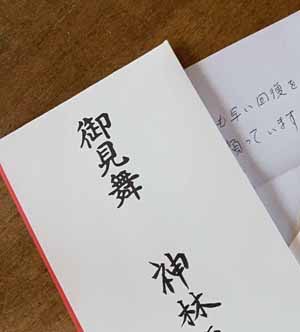 御見舞
神林
も早い回復を
願っています